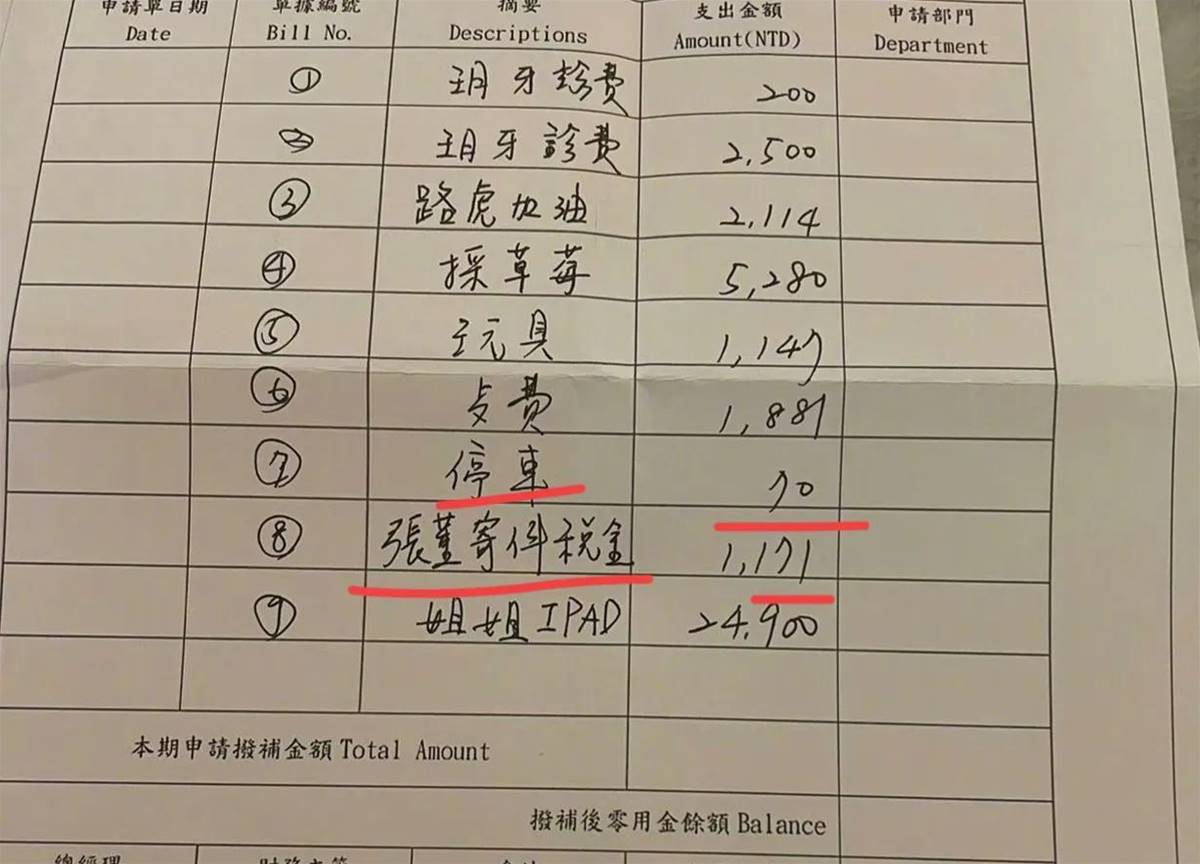 申請單日期 單據編號 摘要 支出金額 申請部門
Date Bill No. Descriptions Amount(NTD) Department
① 玥牙診費 200
② 玥牙診費 2,500
③ 路虎加油 2,114
④ 採草莓 5,280
⑤ 玩具 1,147
⑥ 費 1,887
⑦ 停車 70
⑧ 張董寄件税金 1,171
⑨ 姐姐IPAD 24,900
本期申請撥補金額 Total Amount
撥補後零用金餘額 Balance
總經理 財務主管 會計